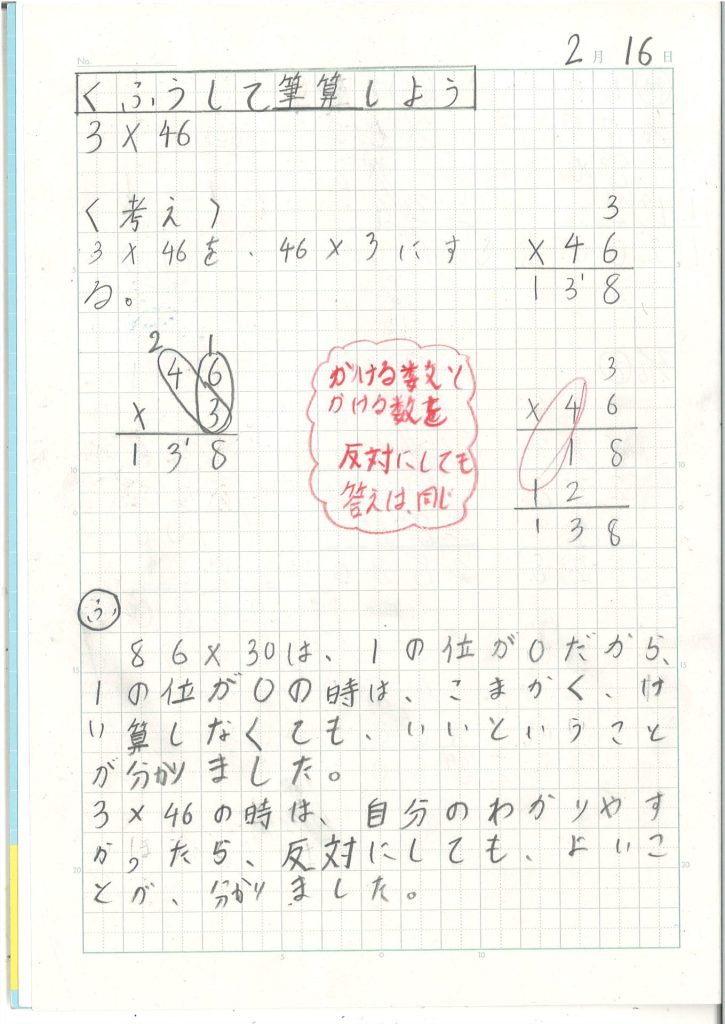 No.
2月16日
くふうして筆算しよう
3×46
〈考え〉
3×46を、46×3にす
る。
3
×46
138
2 1
46
×3
138
かける数と
かける数を
反対にしても
答えは、同じ
3
×46
18
12
138
ふ
86×30は、1の位が0だから、
1の位が0の時は、こまかく、け
い算しなくても、いいということ
が分かりました。
3×46の時は、自分のわかりやす
かったら、反対にしても、よいこ
とが、分かりました。